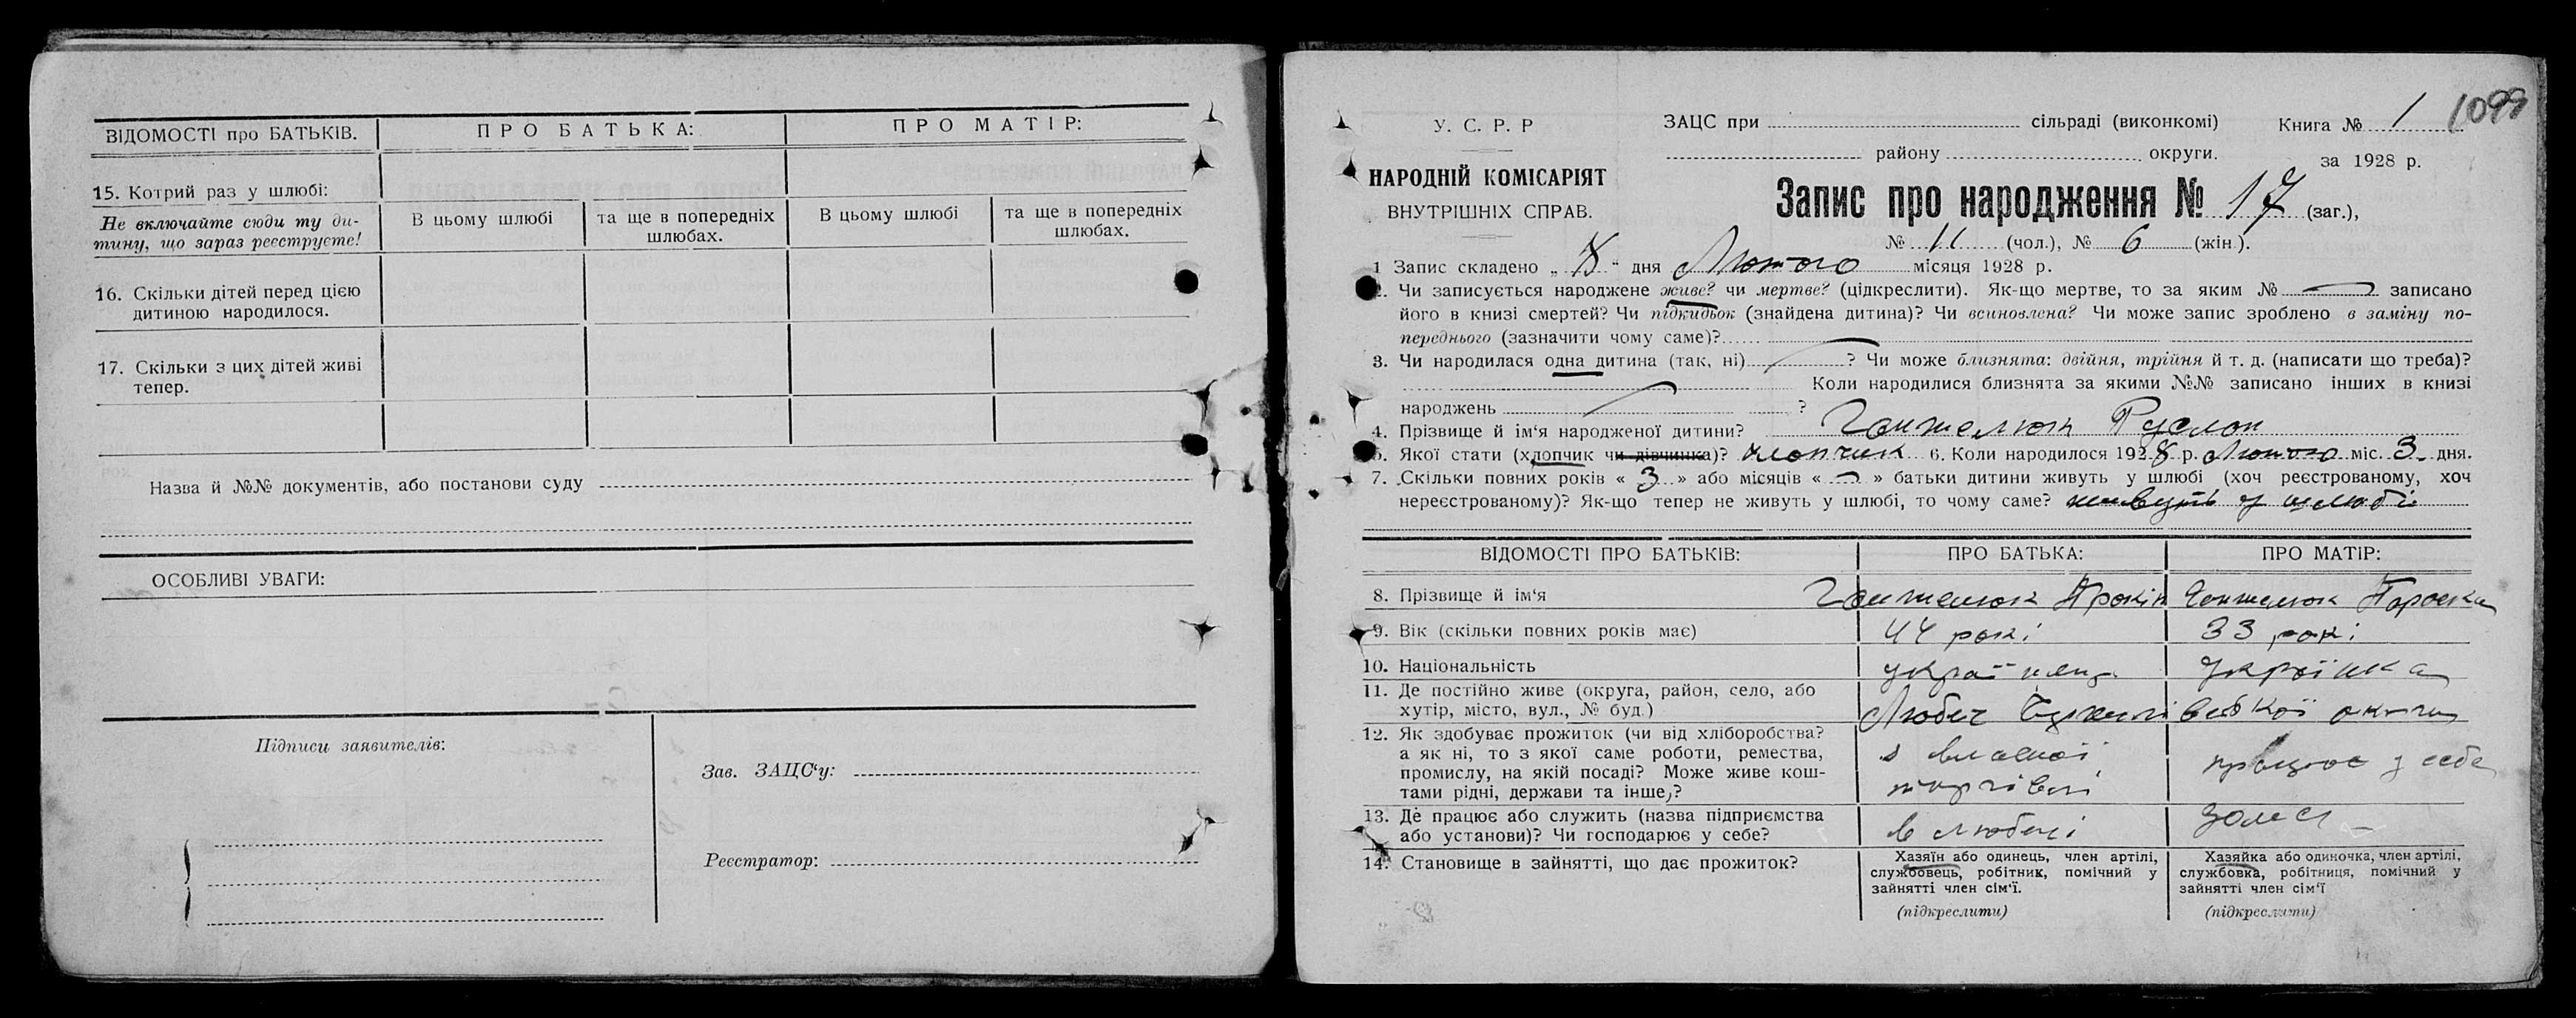 ВІДОМОСТІ про БАТЬКІВ. ПРО БАТЬКА: ПРО МАТІР:
15. Котрий раз у шлюбі:
Не включайте сюди ту ди-
тину, що зараз реєструєте!
В цьому шлюбі
та ще в попередніх
шлюбах.
В цьому шлюбі
та ще в попередніх
шлюбах.
16. Скільки дітей перед цією
дитиною народилося.
17. Скільки з цих дітей живі
тепер.
Назва й №№ документів, або постанови суду
ОСОБЛИВІ УВАГИ:
Підписи заявителів:
Зав. ЗАЦС‘у:
Реєстратор:
1099
У. С. Р. Р
НАРОДНІЙ КОМІСАРІЯТ
ВНУТРІШНІХ СПРАВ.
ЗАЦС при сільраді (виконкомі)
району округи.
Книга № 1
за 1928 р.
Запис про народження № 17 (заг.),
№ 11 (чол.), № 6 (жін.).
1 Запис складено „ 8 “ дня Лютого місяця 1928 р.
2. Чи записується народжене живе? чи мертве? (цідкреслити). Як-що мертве, то за яким № записано
його в книзі смертей? Чи підкидьок (знайдена дитина)? Чи всиновлена? Чи може запис зроблено в заміну по-
переднього (зазначити чому саме)?
3. Чи народилася одна дитина (так, ні) ? Чи може близнята: двійня, трійня й т. д. (написати що треба)?
Коли народилися близнята за якими №№ записано інших в книзі
народжень ?
4. Прізвище й ім‘я народженої дитини? Ганжелюк Руслан
5. Якої стати (хлопчик чи дівчинка)? хлопчик 6. Коли народилося 1928 р. Лютого міс. 3 дня.
7. Скільки повних років « 3 » або місяців « » батьки дитини живуть у шлюбі (хоч реєстрованому, хоч
нереєстрованому)? Як-що тепер не живуть у шлюбі, то чому саме? живуть у шлюбі
ВІДОМОСТІ ПРО БАТЬКІВ: ПРО БАТЬКА: ПРО МАТІР:
8. Прізвище й ім‘я Ганжелюк Прокіп Ганжелюк Параска
9. Вік (скільки повних років має) 44 рокі 33 рокі
10. Національність українец Українка
11. Де постійно живе (округа, район, село, або
хутір, місто, вул., № буд.)
Любеч Чернигівської округи
12. Як здобуває прожиток (чи від хліборобства?
а як ні, то з якої саме роботи, ремества,
промислу, на якій посаді? Може живе кош-
тами рідні, держави та інше,?
з власної
торгівлі
працює у себе
13. Де працює або служить (назва підприємства
або установи)? Чи господарює у себе?
в Любечі
дома
14. Становище в зайнятті, що дає прожиток?
Хазяїн або одинець, член артілі,
службовець, робітник, помічний у
зайнятті член сім‘ї.
(підкреслити)
Хазяйка або одиночка, член артілі,
службовка, робітниця, помічний у
зайнятті член сім‘ї
(підкреслити)